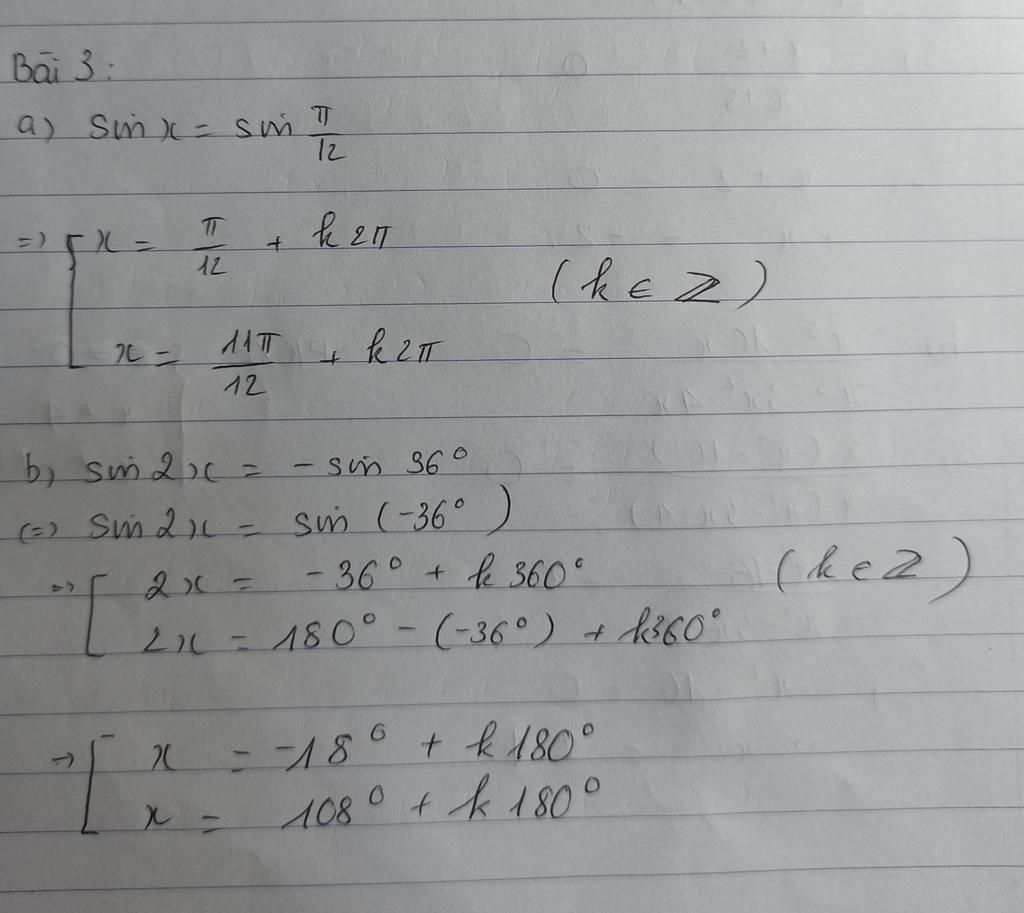 Bài 3:
a) sin x = sin π/12
=> [ x = π/12 + k2π
(k ∈ ℤ)
x = 11π/12 + k2π
b, sin 2x = - sin 36°
(=) sin 2x = sin (-36°)
=> [ 2x = -36° + k360° (k ∈ ℤ)
2x = 180° - (-36°) + k360°
→ [ x = -18° + k180°
x = 108° + k180°